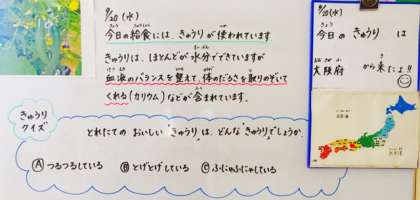 9/20(水)
今日の給食には、きゅうりが使われています
きゅうりは、ほとんどが水分でできていますが
血液のバランスを整えて、体のだるさを取りのぞいて
くれる(カリウム)などが含まれています。
きゅうり
クイズ
とれたての おいしい "きゅうり"は、どんなきゅうりでしょうか。
Ⓐ つるつるしている Ⓑ とげとげしている Ⓒ ふにゃふにゃしている
9/20(水)
今日の きゅうり は
大阪府 から来たよ!!